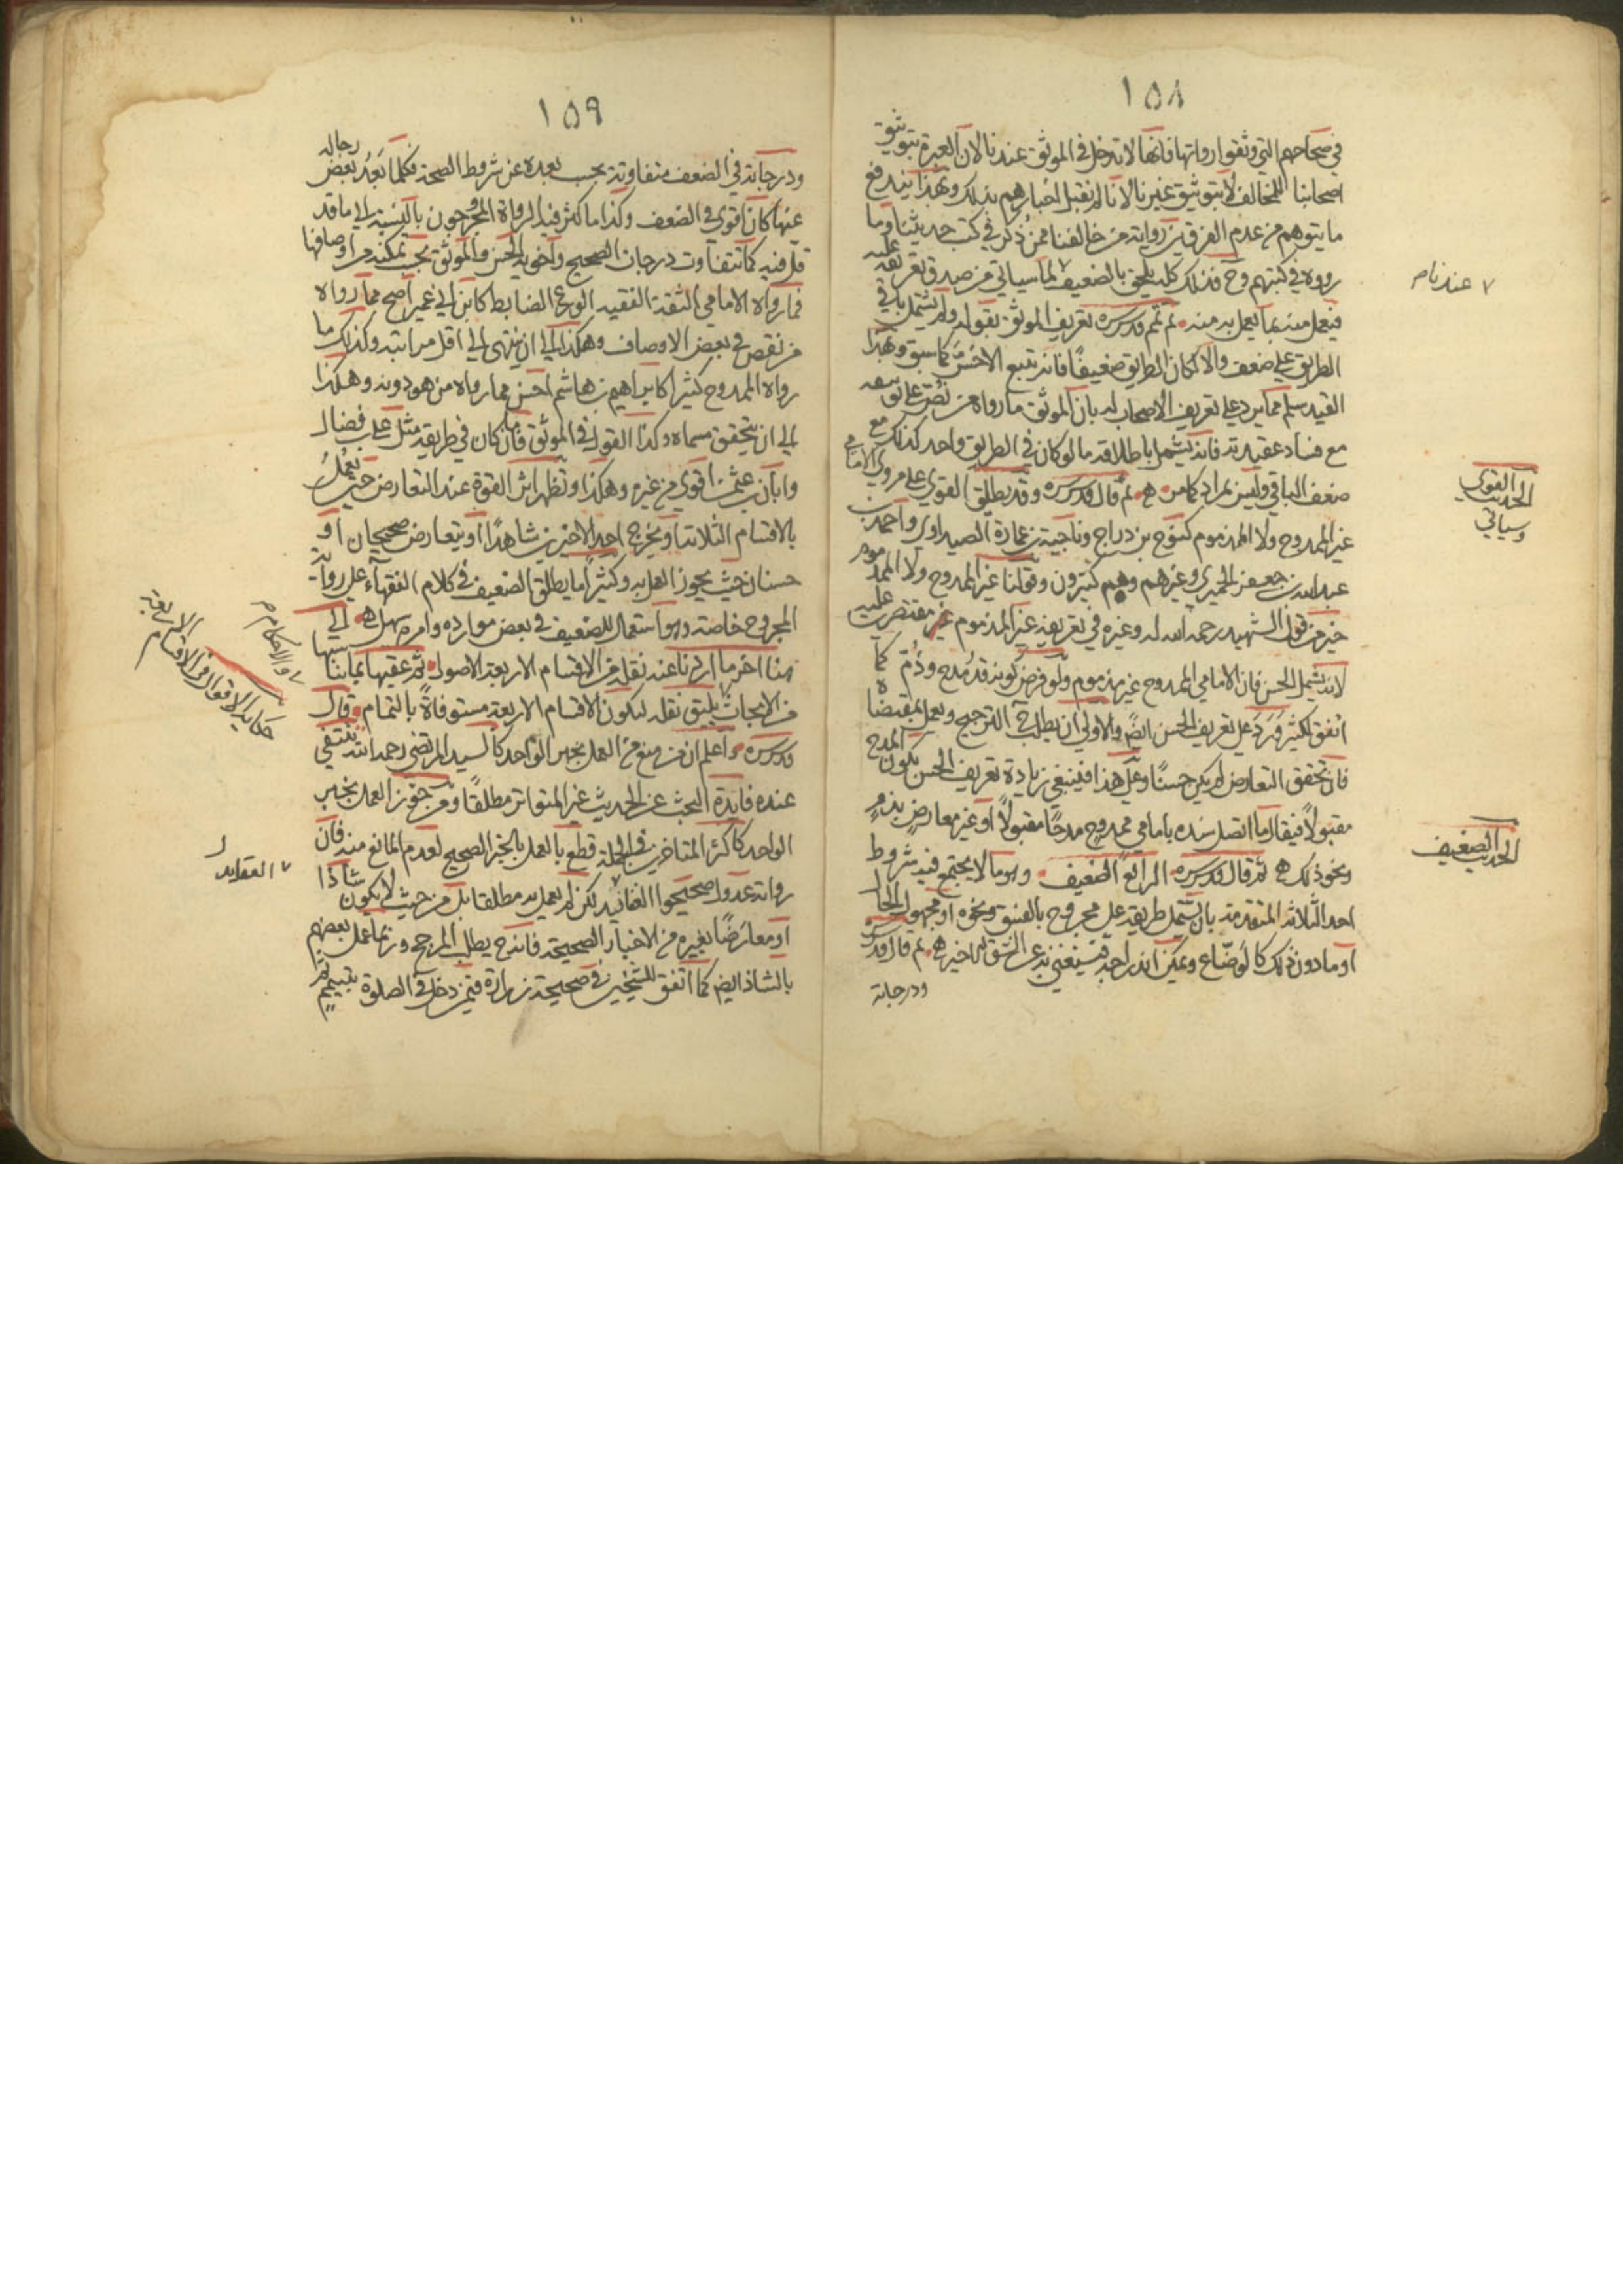 ١٥٨
في صحاحهم التي وثقوا رواتها فانها لا تدخل في الموثق عندنا لان العبرة بتوثيق
اصحابنا للمخالف لا بتوثيق غيرنا لانا لم نقبل اخبارهم بذلك وبهذا يندفع
ما يتوهم من عدم الفرق بين رواية من خالفنا ممن ذكر في كتب حديثنا وما
رووه في كتبهم وح فذلك كله يلحق بالضعيف لما سياتي من صدق تعريفه عليه
فيعمل منه بما يعمل به منه ثم تمم قدس سره تعريف الموثق بقوله ولم يشتمل باقي
الطريق على ضعف والا لكان الطريق ضعيفا فانه يتبع الاخس كما سبق وبهذا
القيد سلم مما يرد على تعريف الاصحاب له بان الموثق ما رواه من نص على توثيقه
مع فساد عقيدته فانه يشمل باطلاقه ما لو كان في الطريق واحد كذلك مع
ضعف الباقي وليس بمراد كما من هى ثم قال قدس سره وقد يطلق القوي على مروي الامامي
غير الممدوح ولا المذموم كنوح بن دراج وناجية بن عمارة الصيداوي واحمد بن
عبد الله بن جعفر الحميري وغيرهم وهم كثيرون وقولنا غير الممدوح ولا المذموم
خير من قول الشهيد رحمه الله له وغيره في تعريفه غير المذموم غير مقتصر عليه
لانه يشمل الحسن فان الامامي الممدوح غير مذموم ولو فرض كونه قد مدح وذم كما
اتفق لكثير ورد على تعريف الحسن ايضا والاولى ان يطلب ح الترجيح ويعمل بمقتضاه
فان تحقق التعارض لم يكن حسنا وعلى هذا فينبغي زيادة تعريف الحسن بكون المدح
مقبولا فيقال ما اتصل سنده بامامي ممدوح مدحا مقبولا او غير معارض بذم
ونحو ذلك هى ثم قال قدس سره الرابع الضعيف وهو ما لا يجتمع فيه شروط
احد الثلاثة المتقدمة بان يشتمل طريقه على مجروح بالفسق ونحوه او مجهول الحال
او ما دون ذلك كالوضاع ويمكن اندراجه فيستغني به عن الشق الاخير هى ثم قال قدس سره
ودرجاته
٧ عند نام
الحديث القوي
وسياتي
الحديث الضعيف
١٥٩
ودرجاته في الضعف متفاوتة بحسب بعده عن شروط الصحة فكلما بعد بعض رجاله
عنها كان اقوى في الضعف وكذا ما كثر فيه الرواة المجروحون بالنسبة الى ما قد
قل فيه كما تتفاوت درجات الصحيح واخويه الحسن والموثق بحسب تمكنه من اوصافها
فما رواه الامامي الثقة الفقيه الورع الضابط كابن ابي عمير اصح مما رواه
من نقص في بعض الاوصاف وهكذا الى ان ينتهي الى اقل مراتبه وكذلك ما
رواه الممدوح كثيرا كابراهيم بن هاشم احسن مما رواه من هو دونه وهكذا
الى ان يتحقق مسماه وكذا القول في الموثق فان ما كان في طريقه مثل علي بن فضال
وابان بن عثمان اقوى من غيره وهكذا وتظهر اثر القوة عند التعارض حيث يعمل
بالاقسام الثلاثة او يخرج احد الاخيرين شاهدا او يتعارض صحيحان او
حسنان حيث يجوز العمل به وكثيرا ما يطلق الضعيف في كلام الفقهاء على رواية
المجروح خاصة وهو استعمال للضعيف في بعض موارده وامره سهل هى الى
هنا اخر ما اردنا عنه نقله من الاقسام الاربعة الاصول ثم عقبها بما يناسبها
من الابحاث يليق نقله ليكون الاقسام الاربعة مستوفاة بالتمام وقال
قدس سره واعلم ان من منع من العمل بخبر الواحد كالسيد المرتضى رحمه الله تنتفي
عنده فايدة البحث عن الحديث غير المتواتر مطلقا ومن جوز العمل بخبر
الواحد كاكثر المتاخرين في الجملة قطع بالعمل بالخبر الصحيح لعدم المانع منه فان
رواته عدول صحيحوا العقائد لكن لم يعمل به مطلقا بل من حيث لا يكون شاذا
او معارضا بغيره من الاخبار الصحيحة فانه ح يطلب المرجح وربما عمل بعضهم
بالشاذ ايضا كما اتفق للشيخين في صحيحة زرارة فيمن دخل في الصلوة بتيمم ثم
٧ والاحكام م
حكاية الاقوال في الاقسام الاربعة
٧ العقايد ل